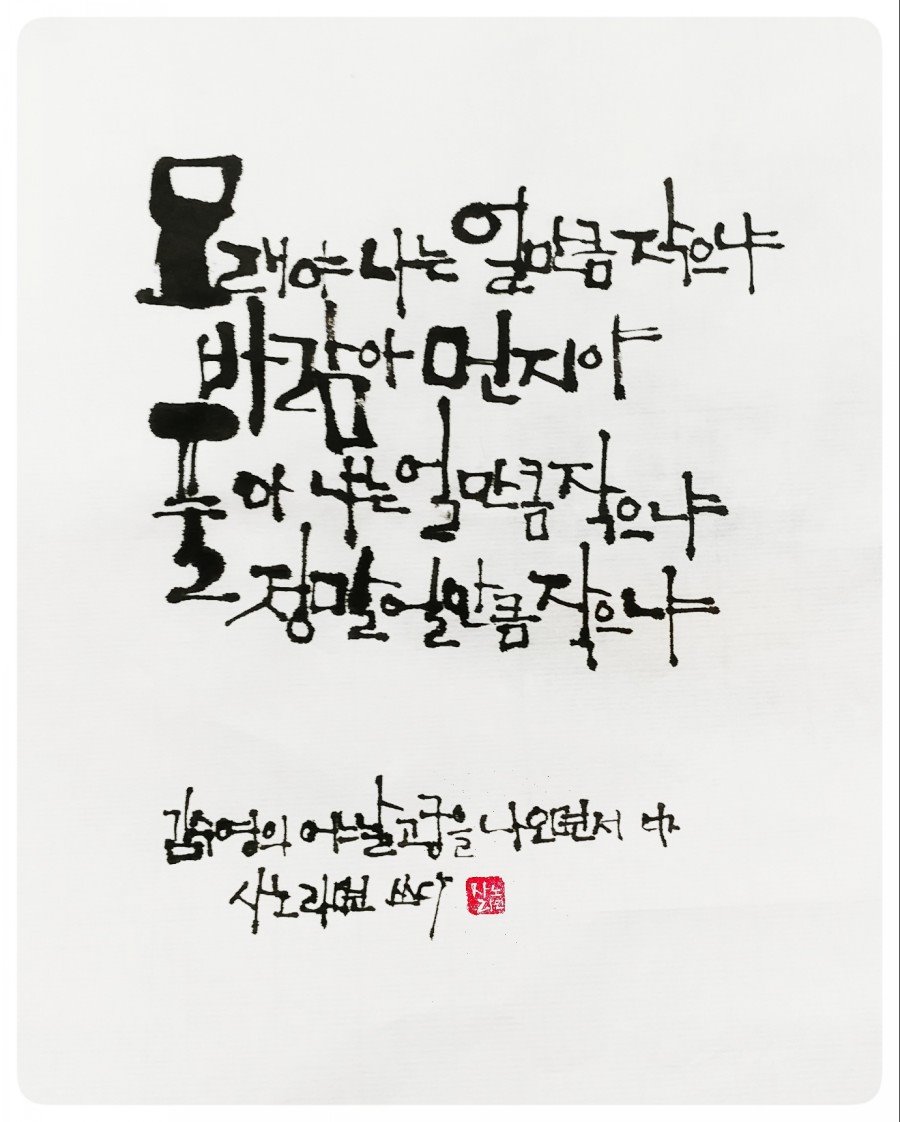 모래야 나는 얼만큼 작으냐
바람아 먼지야
풀아 나는 얼만큼 작으냐
정말 얼만큼 작으냐
김수영의 어느날 고궁을 나오면서 中
사노라면 쓰다
사노
라면